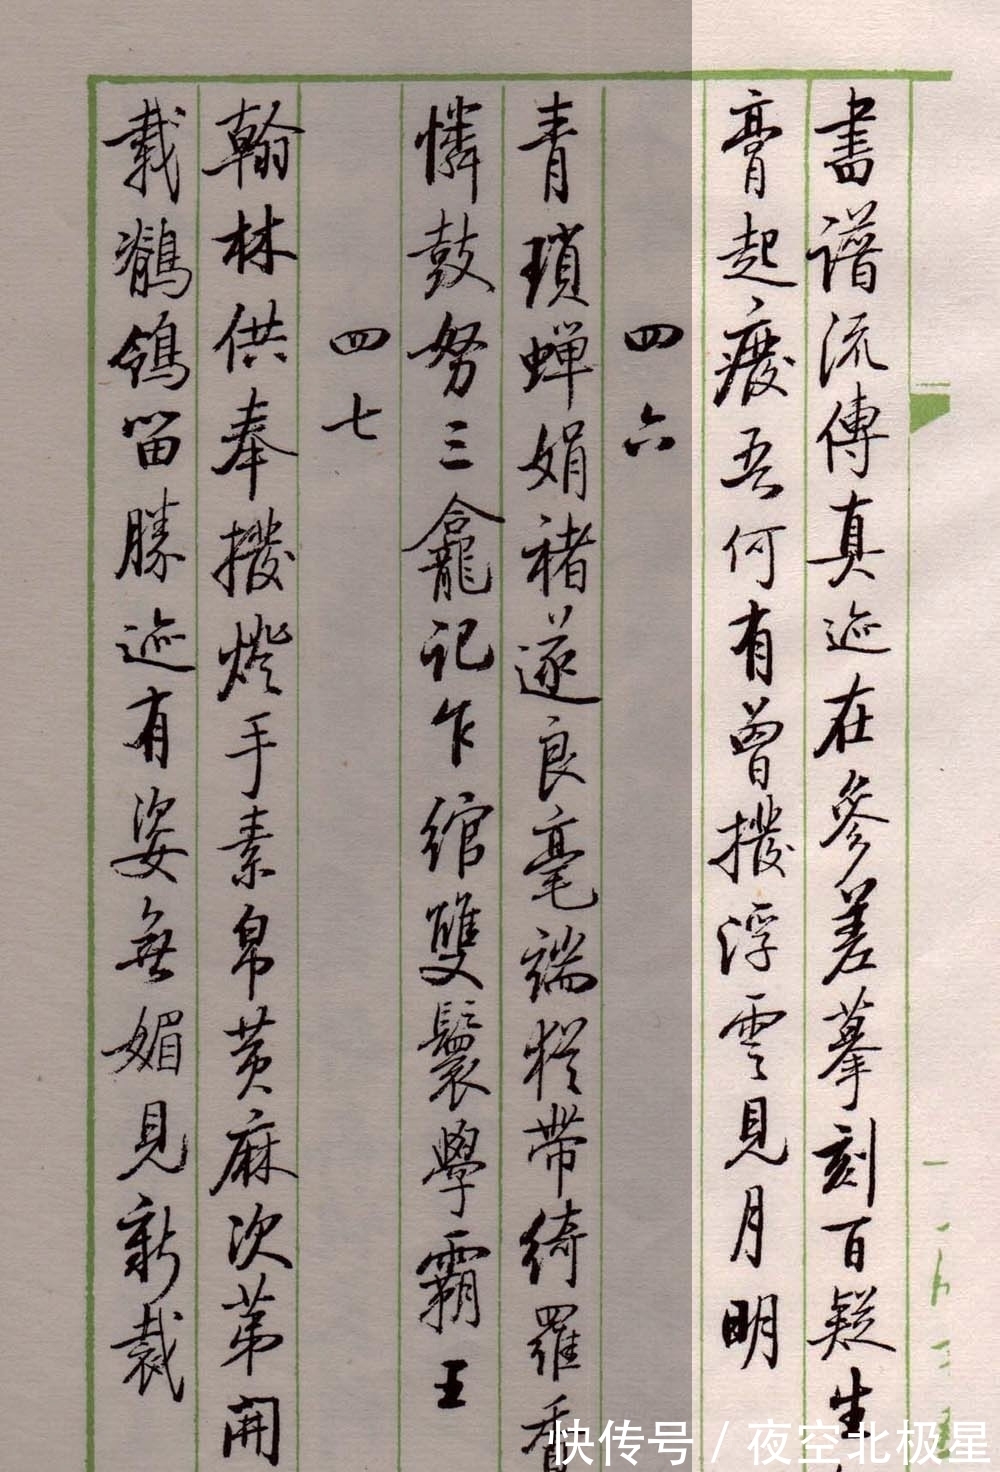 書譜流傳真迹在參差摹刻百疑生
膏起廢吾何有曾撥浮雲見月明
四六
青瑣蟬娟褚遂良毫端猶帶綺羅香
憐鼓努三龕記乍綰雙鬟學霸王
四七
翰林供奉撥燈手素帛黃麻次第開
載鶺鴒留勝迹有姿無媚見新裁
快传号/夜空北极星